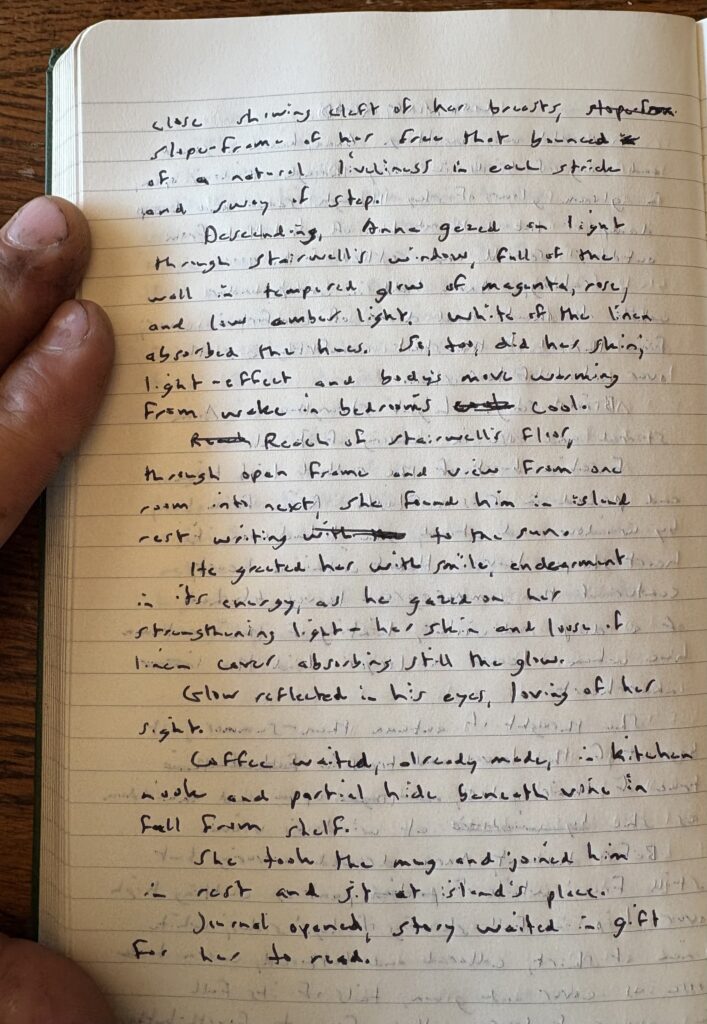 close showing cleft of her breasts,
slope-frame of her free that bounced
of a natural liveliness in each stride
and sway of step.
Descending, Anna gazed on light
through stairwell's window, full of the
wall in tempered glow of magenta, rose,
and low amber light. White of the linen
absorbed the hues. So, too, did her skin;
light-effect and body's move warming
from wake in bedroom's cool.
Reach of stairwell's floor,
through open frame and view from one
room into next, she found him in island
rest writing to the sun.
He greeted her with smile, endearment
in its energy, as he gazed on her
strengthening light - her skin and loose of
linen cover absorbing still the glow.
Glow reflected in his eyes, loving of her
sight.
Coffee waited, already made, in kitchen
nook and partial hide beneath vine in
fall from shelf.
She took the mug and joined him
in rest and sit at island's place.
Journal opened, story waited in gift
for her to read.